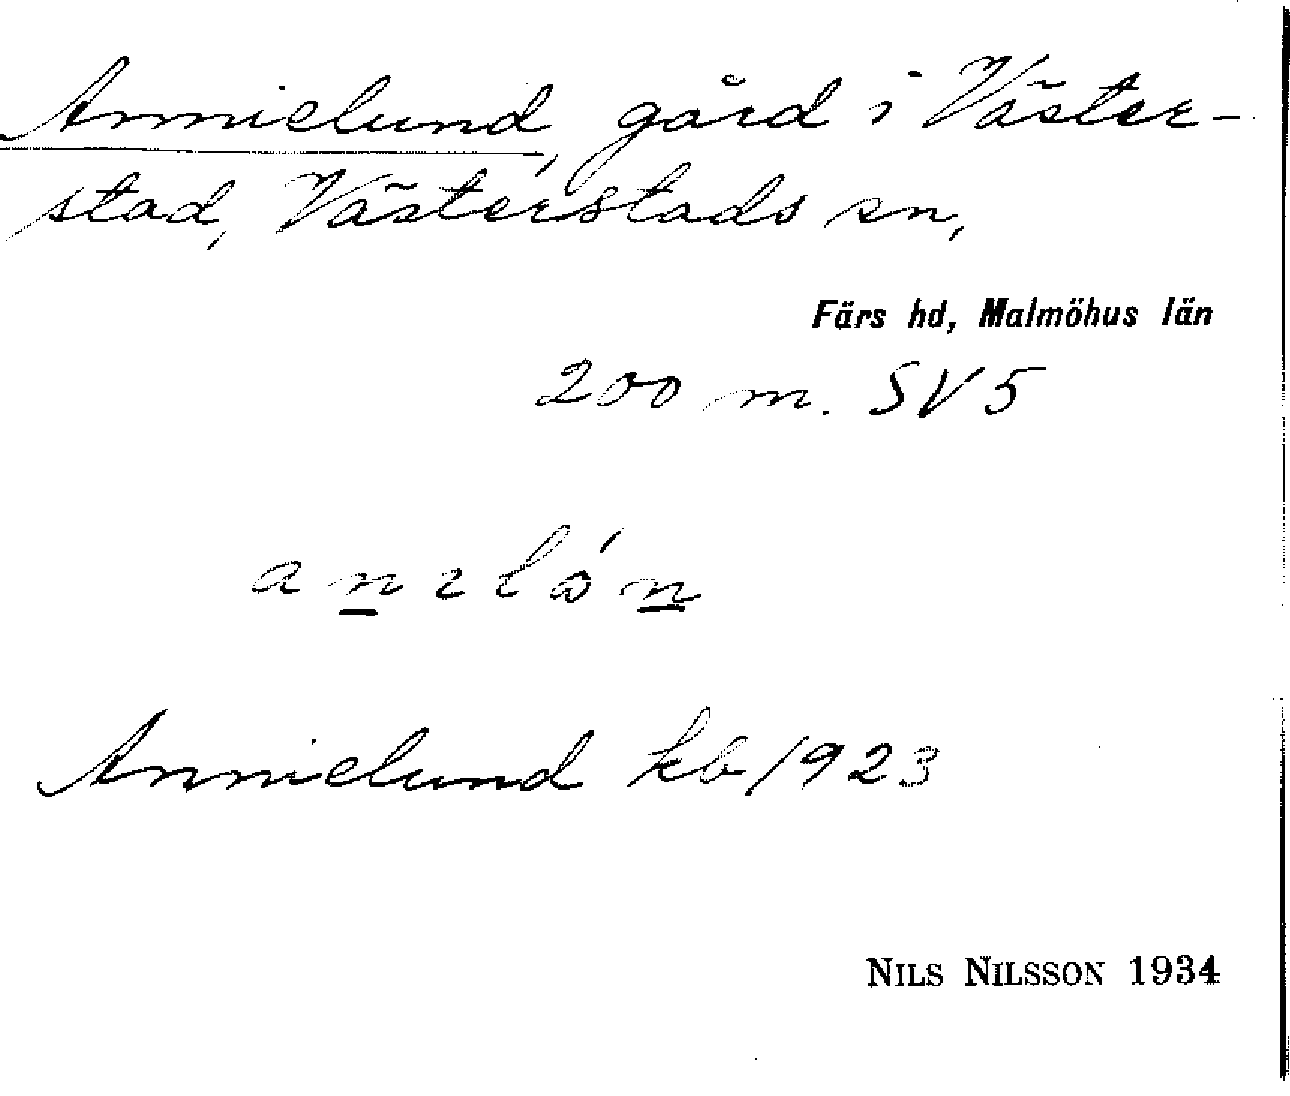 Annielund, gård i Väster-
stad, Västerstads sn,
Färs hd, Malmöhus län
200 m. SV 5
Annielund kb 1923
NILS NILSSON 1934